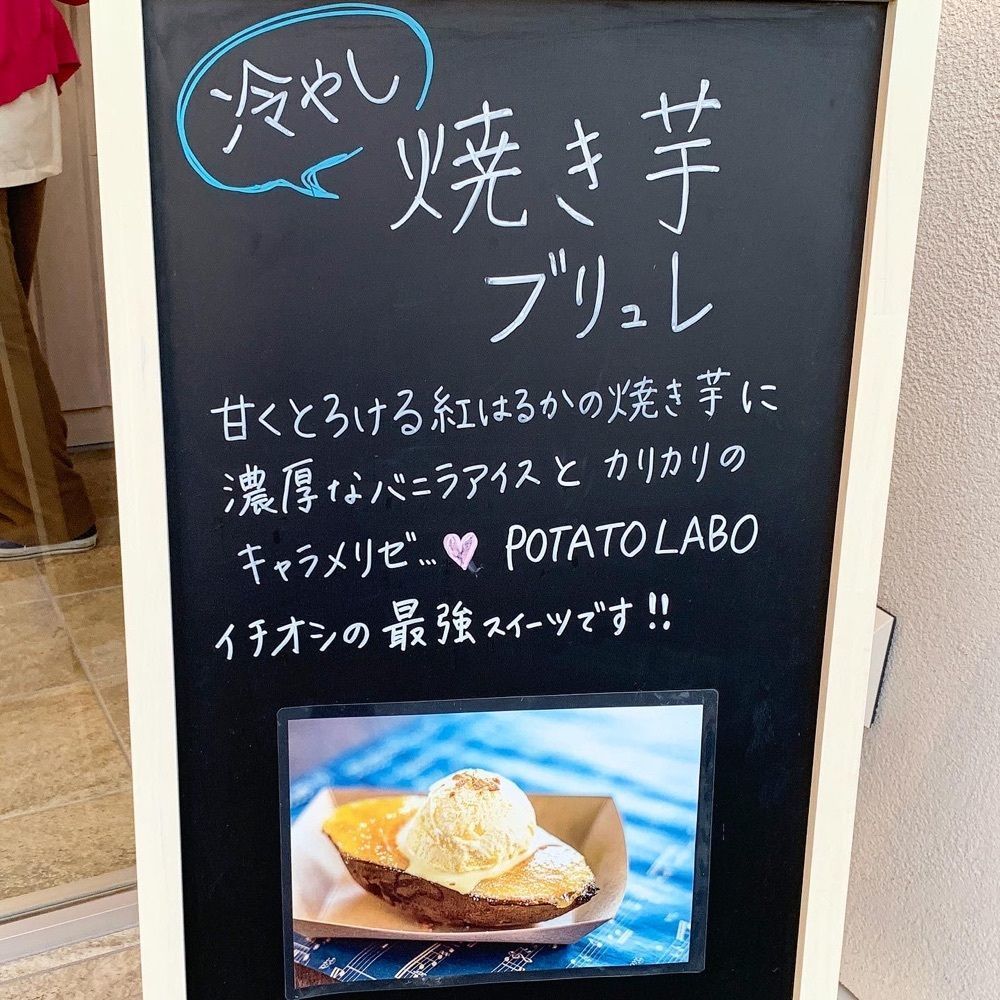 冷やし
焼き芋
ブリュレ
甘くとろける紅はるかの焼き芋に
濃厚なバニラアイスと カリカリの
キャラメリゼ…♥ POTATO LABO
イチオシの最強スイーツです!!